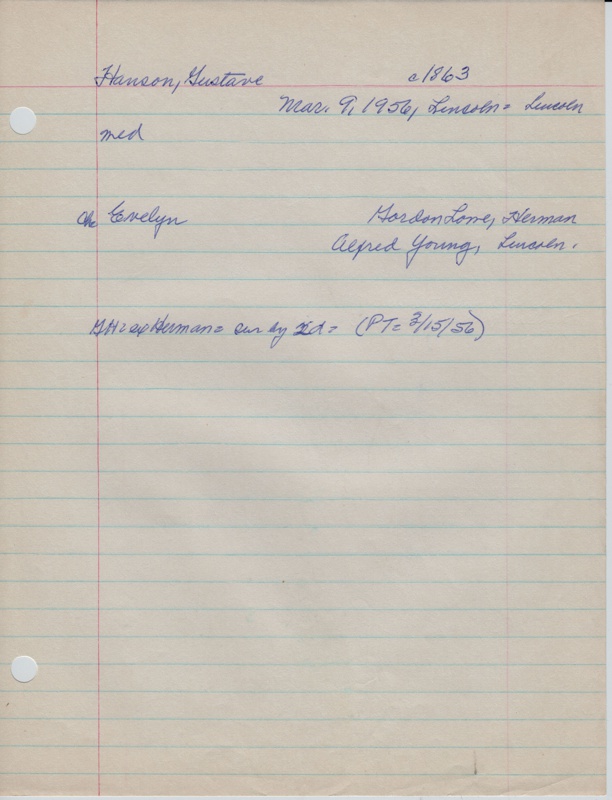 Hanson, Gustave c1863
Mar. 9, 1956, Lincoln= Lincoln
med
ch Evelyn Gordon Lowe, Herman
Alfred Young, Lincoln.
Herman= sur by 2d= (PT= 3/15/56)